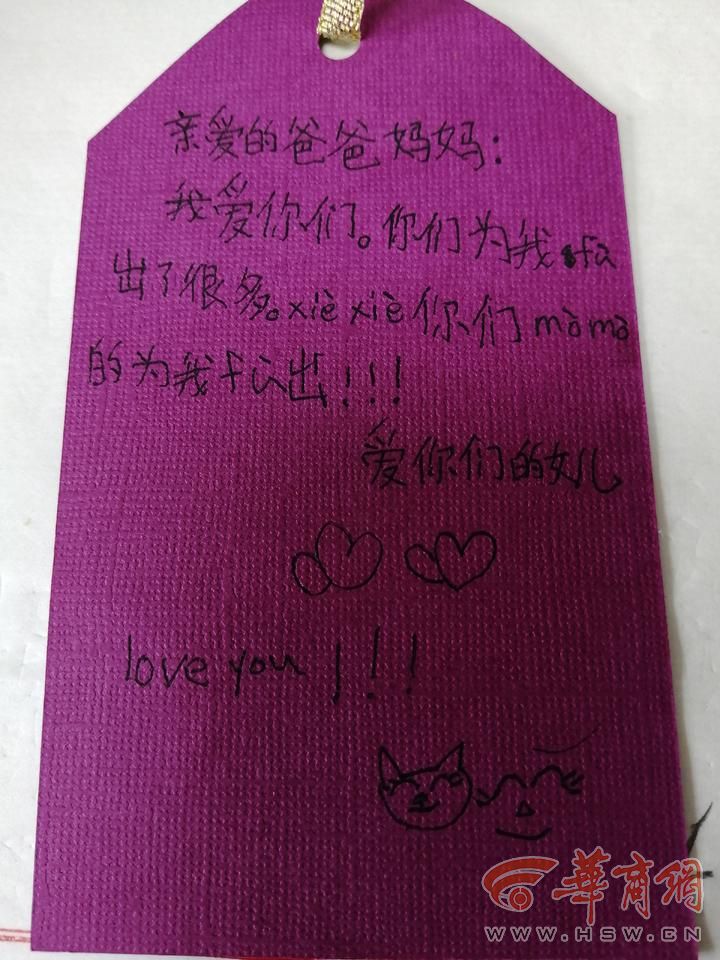 亲爱的爸爸妈妈：
我爱你们。你们为我fù
出了很多。xiè xiè你们mò mò
的为我fù出！！！
爱你们的女儿
love you！！！
华商网
www.HSW.CN